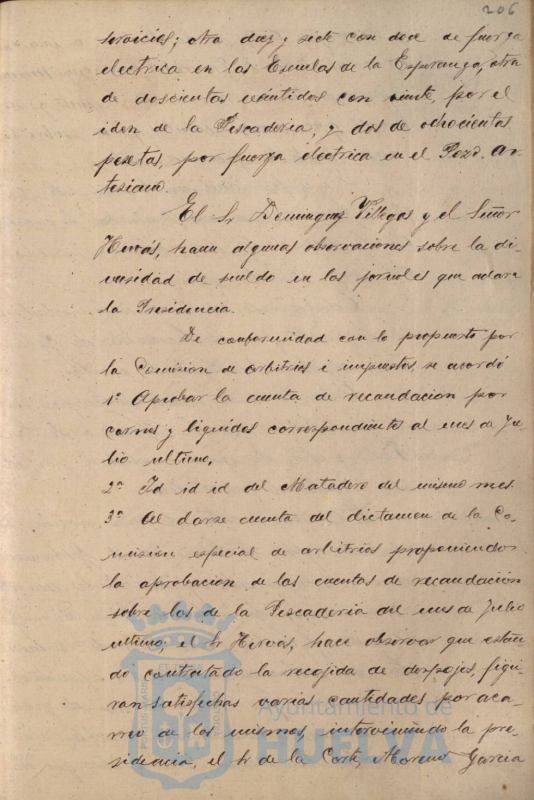 206
servicios; otra diez y siete con doce de fuerza
electrica en las Escuelas de la Esperanza, otra
de doscientas veintidos con veinte, por el
idem de la Pescaderia, y dos de ochocientas
pesetas, por fuerza electrica en el Pozo Ar-
tesiano.
El Sr Dominguez Villegas y el Señor
Hervás, hacen algunas observaciones sobre la di-
versidad de sueldo en los jornales que aclara
la Presidencia.
De conformidad con lo propuesto por
la Comision de arbitrios é impuestos, se acordó
1º Aprobar la cuenta de recaudacion por
carnes y liquidos correspondientes al mes de Ju-
lio ultimo,
2º Id id id del Matadero del mismo mes
3º Al darse cuenta del dictamen de la Co-
mision especial de arbitrios proponiendo
la aprobacion de las cuentas de recaudacion
sobre los de la Pescaderia del mes de Julio
ultimo; el Sr Hervás, hace observar que estan-
do contratado la recojida de despojos, figu-
ran satisfechas varias cantidades por aca-
rreo de los mismos, interviniendo la pre-
sidencia, el Sr de la Corte, Moreno Garcia
Ayuntamiento de
HUELVA